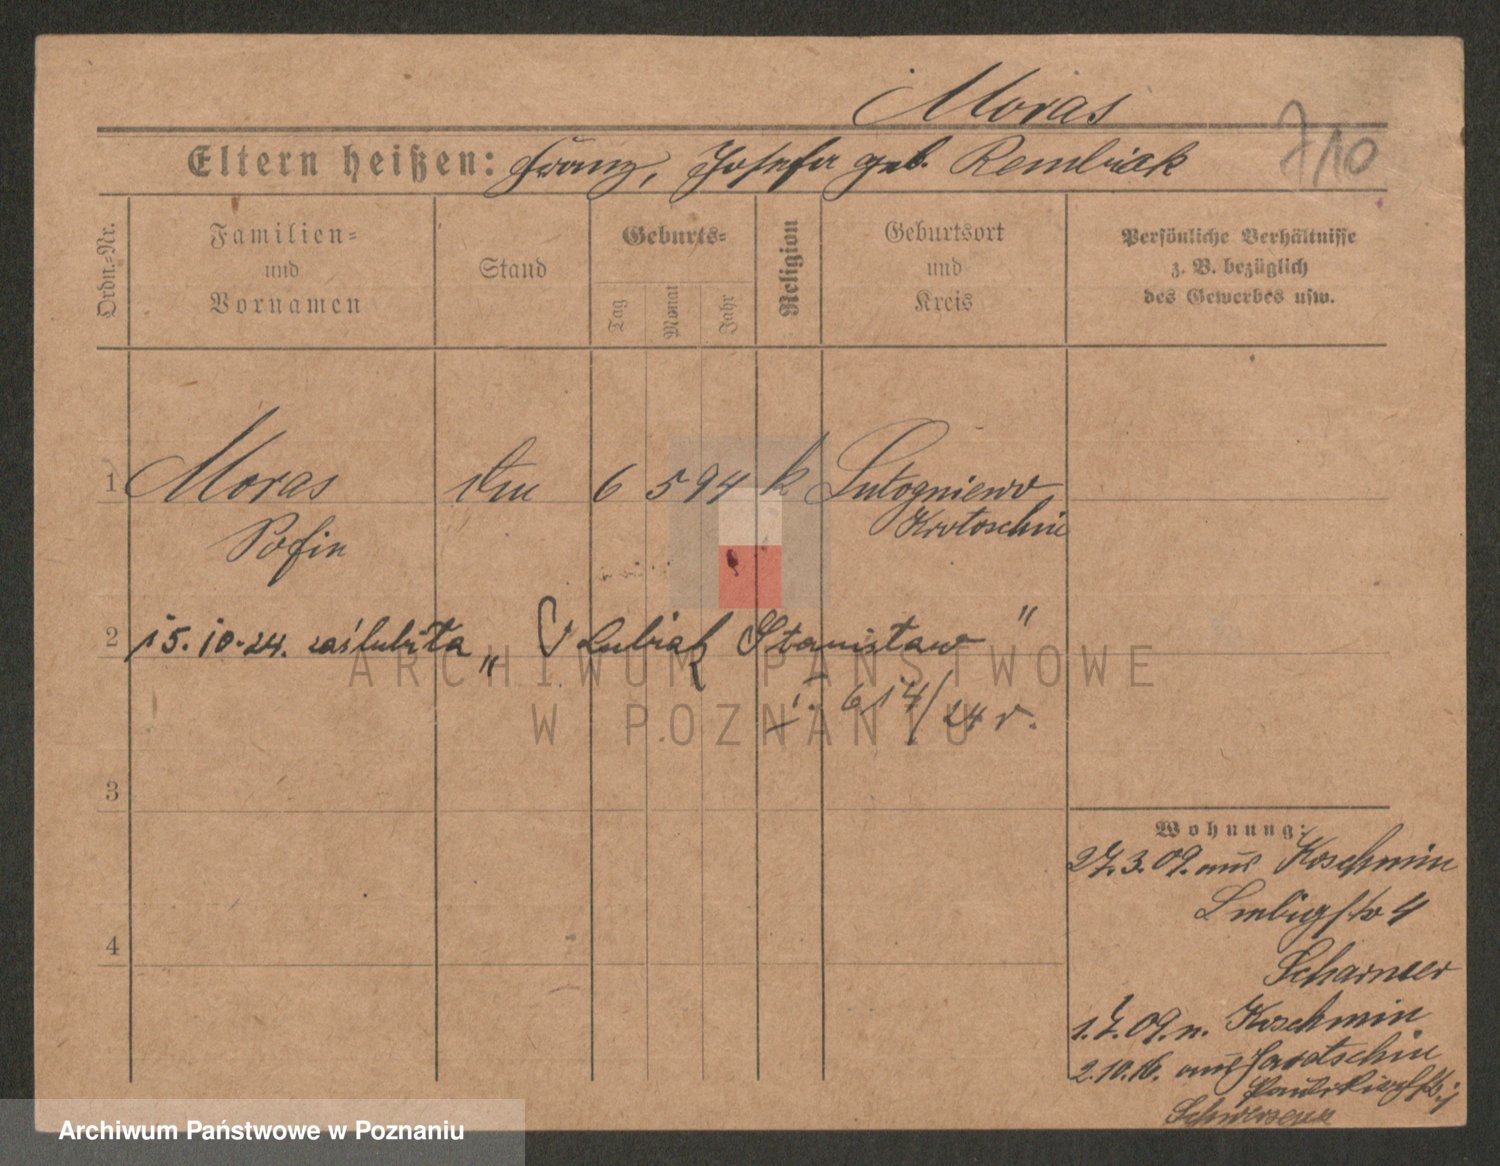 Moras
Eltern heißen: Franz, Josefa geb. Rembiak
710
Ordn.-Nr.
Familien-
und
Vornamen
Stand
Geburts-
Tag
Monat
Jahr
Religion
Geburtsort
und
Kreis
Persönliche Verhältnisse
z. B. bezüglich
des Gewerbes usw.
1 Moras 6 5 94 k Lutogniewo
Sofie Krotoschin
2 15.10.24. zaślubiła „Lubiak Stanisław"
614/24 r.
3
4
Wohnung:
27.3.09. aus Koschmin
4
1.7.09. n. Koschmin
2.10.16. aus Jarotschin
Schwersenz
ARCHIWUM PAŃSTWOWE
W POZNANIU
Archiwum Państwowe w Poznaniu